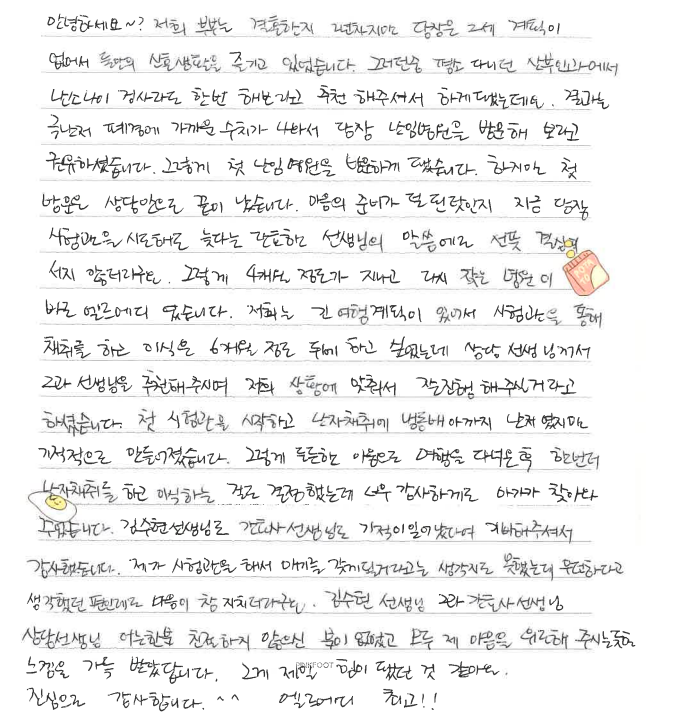 안녕하세요~? 저희 부부는 결혼한지 2년차지만 당장은 2세 계획이
없어서 둘만의 신혼생활을 즐기고 있었습니다. 그러던중 평소 다니던 산부인과에서
난소나이 검사라도 한번 해보라고 추천 해주셔서 하게됐는데요. 결과는
극난저 폐경에 가까운 수치가 나와서 당장 난임병원을 방문해 보라고
권유하셨습니다. 그렇게 첫 난임병원을 방문하게 됐습니다. 하지만 첫
방문은 상담만으로 끝이 났습니다. 마음의 준비가 덜 된탓인지 지금 당장
시험관을 시도해도 늦다는 간호사 선생님의 말씀에도 선뜻 결심이
서지 않더라구요. 그렇게 4개월 정도가 지나고 다시 찾은 병원이
바로 엘르메디 였습니다. 저희는 긴 여행계획이 있어서 시험관을 통해
채취를 하고 이식은 6개월 정도 뒤에 하고 싶었는데 상담 선생님께서
2과 선생님을 추천해주시며 저희 상황에 맞춰서 잘진행 해주실거라고
하셨습니다. 첫 시험관을 시작하고 난자채취에 냉동배아까지 난저였지만
기적적으로 만들어졌습니다. 그렇게 든든한 마음으로 여행을 다녀온후 한번더
난자채취를 하고 이식하는 걸로 결정했는데 너무 감사하게도 아가가 찾아와
주었습니다. 김수현선생님도 간호사선생님도 기적이일어났다며 기뻐해주셔서
감사했습니다. 제가 시험관을 해서 애기를 갖게될거라고는 생각지도 못했는데 무던하다고
생각했던 편인데도 마음이 참 지치더라구요. 김수현 선생님 2과 간호사선생님
상담선생님 어느한분 친절하지 않으신 분이 없었고 모두 제 마음을 위로해 주시는듯한
느낌을 가득 받았답니다. 그게 제일 힘이 됐던 것 같아요.
진심으로 감사합니다. ^^ 엘르메디 최고!!